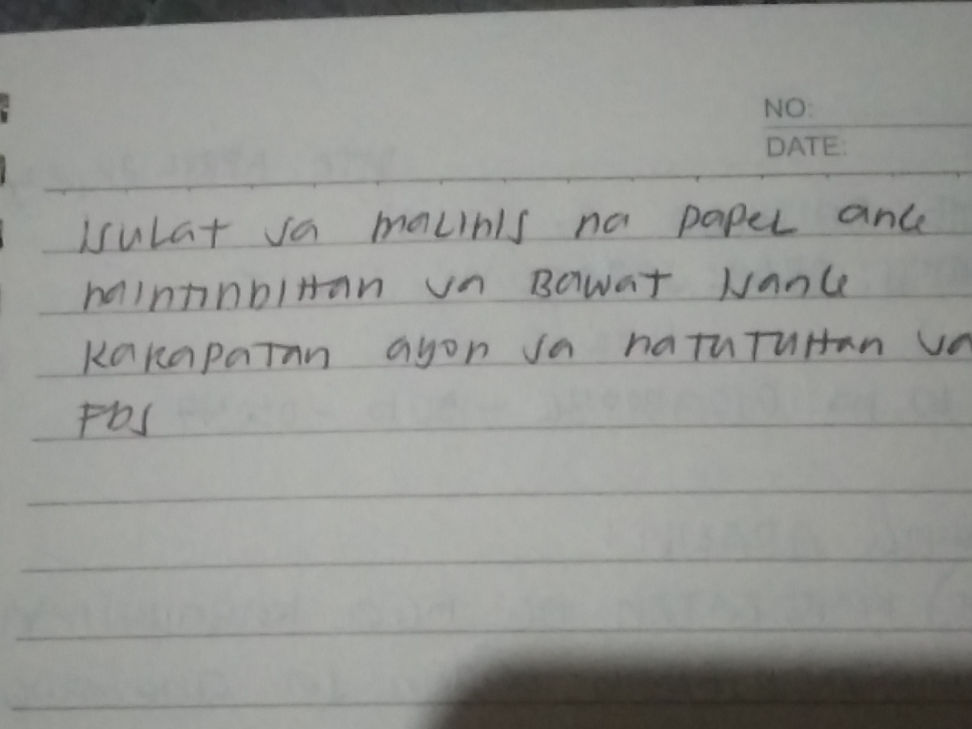 NO:
DATE:
isulat sa malinis na papel ang
naintindihan sa Bawat isang
kakapatan ayon sa natutuhan sa
FDS